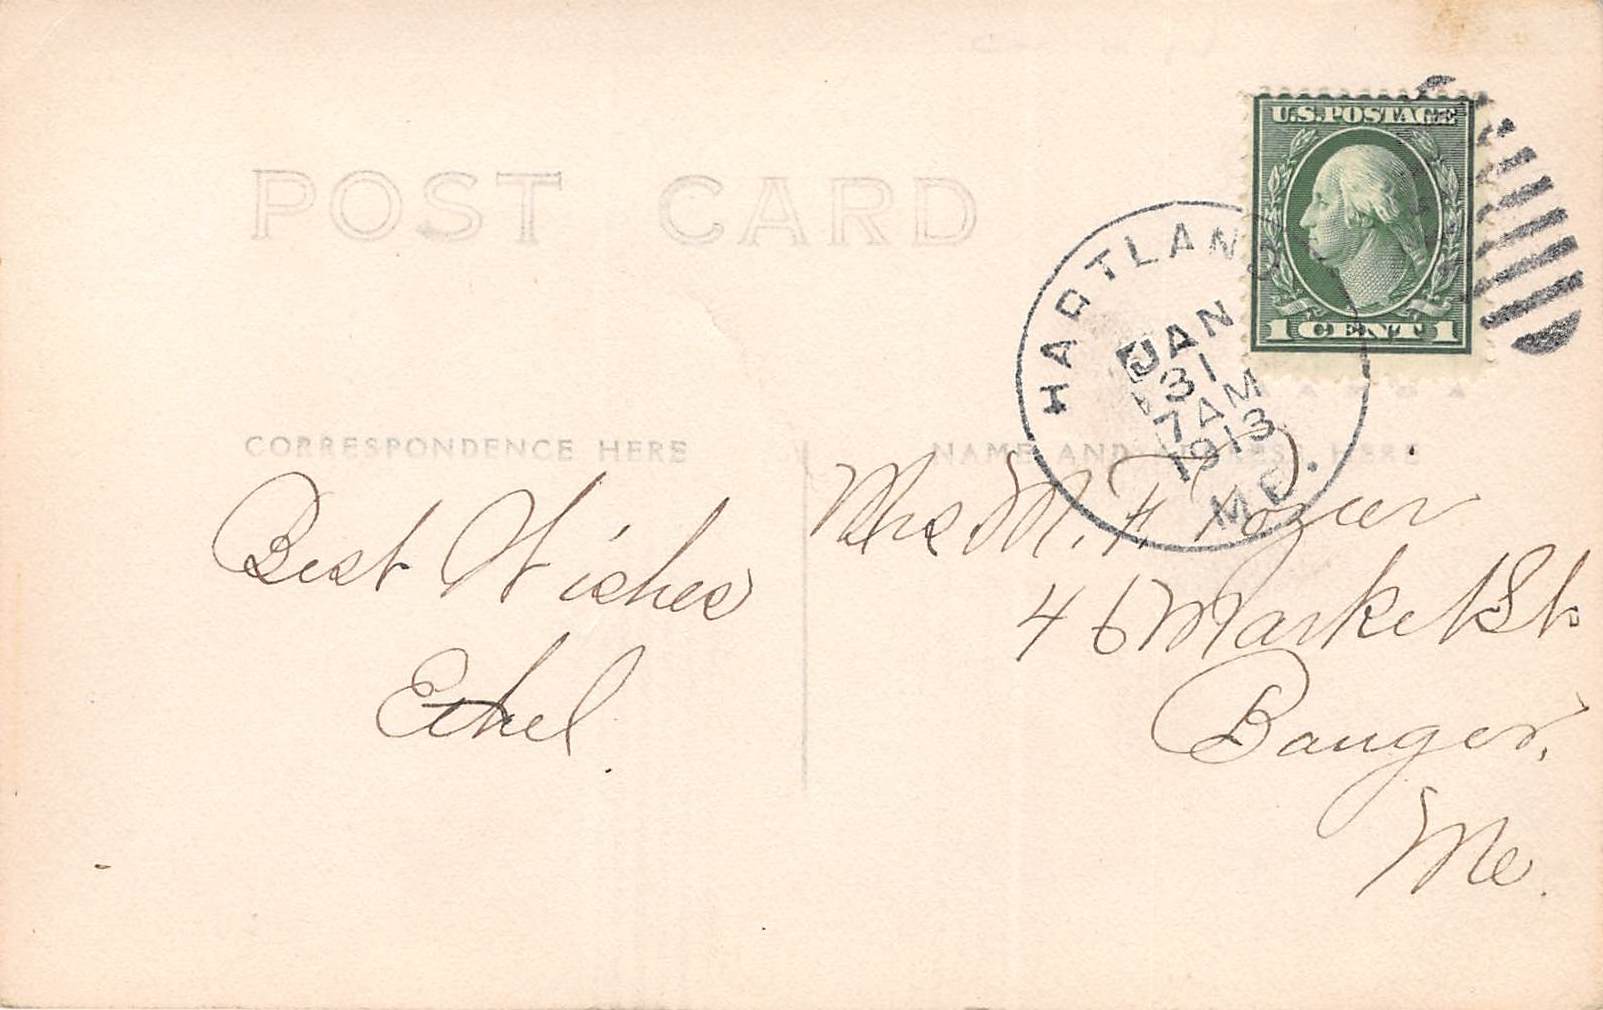 POST CARD
U.S. POSTAGE
1 CENT 1
HARTLAND
JAN
31
7 AM
1913
ME.
CORRESPONDENCE HERE
NAME AND ADDRESS HERE
Best Wishes
Ethel.
Mrs M. F.
46 Market St.
Bangor,
Me.